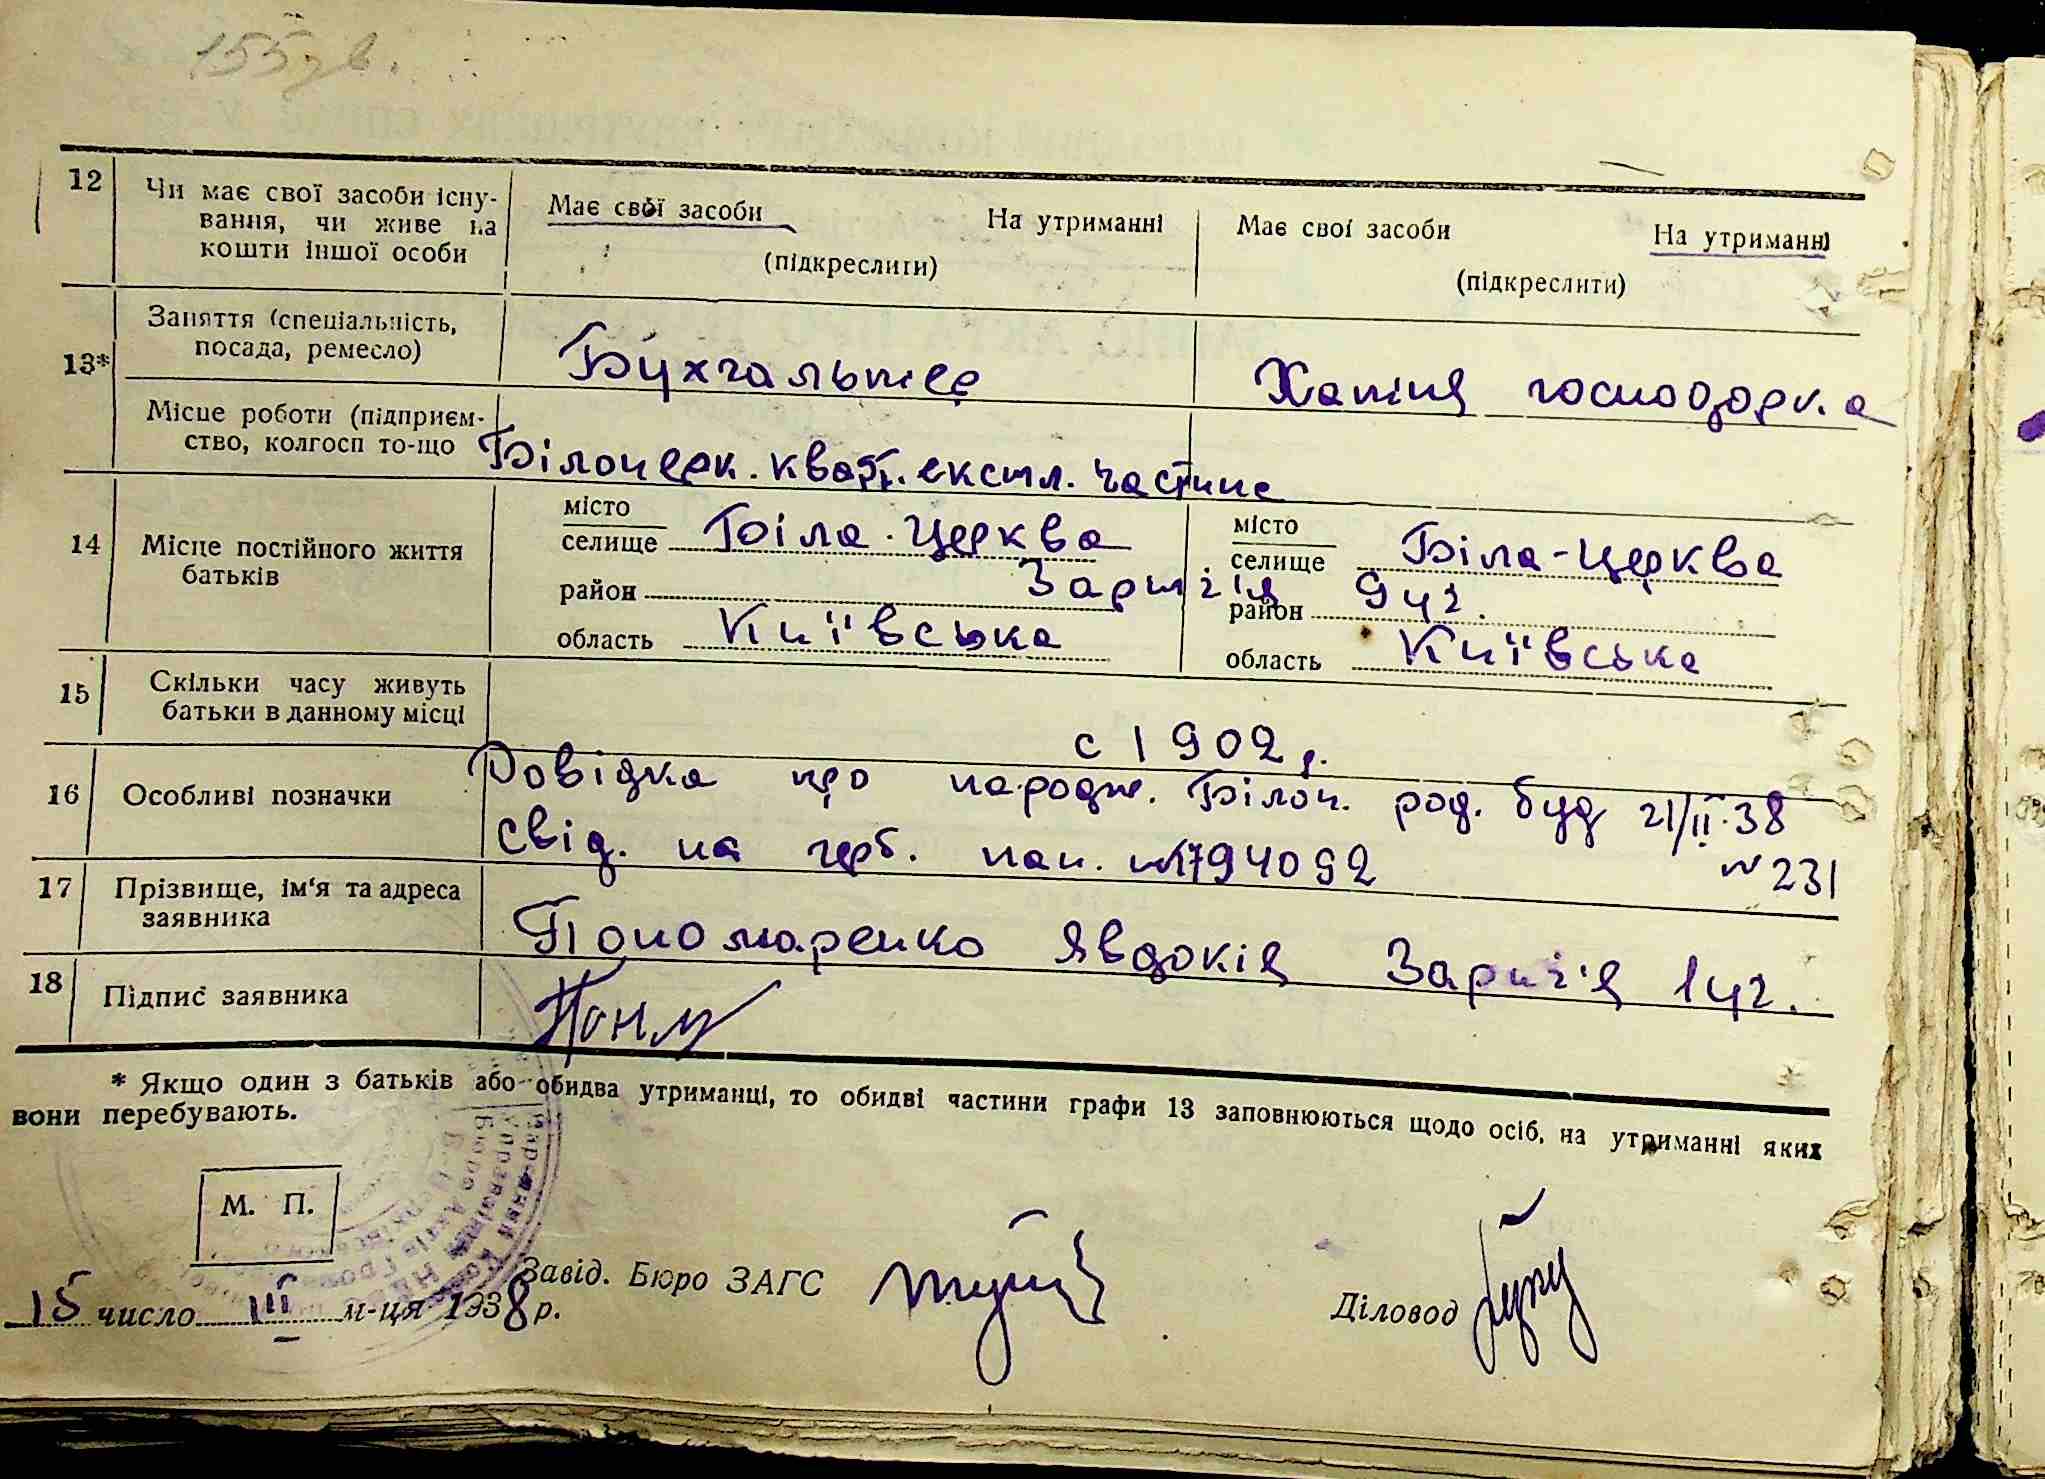 155 зв.
12 Чи має свої засоби існу-
вання, чи живе на
кошти іншої особи
Має свої засоби На утриманні
(підкреслити)
Має свої засоби На утриманні
(підкреслити)
13* Заняття (спеціальність,
посада, ремесло)
Бухгальтер
Хатня господорка
Місце роботи (підприєм-
ство, колгосп то-що
Білоцерк. кварт. експл. частина
14 Місце постійного життя
батьків
місто
селище Біла-Церква
район Заріч'я
область Київська
місто
селище Біла-Церква
район
область Київська
15 Скільки часу живуть
батьки в данному місці
с 1902 р.
16 Особливі позначки
Довідка про народж. Білоц. род. буд 21/II-38
Свід. на герб. пап. №794092 № 231
17 Прізвище, ім'я та адреса
заявника
Пономаренко Явдокія Заріч'я 1
18 Підпис заявника
* Якщо один з батьків або обидва утриманці, то обидві частини графи 13 заповнюються щодо осіб, на утриманні яких
вони перебувають.
М. П.
15 число III м-ця 1938 р.
Завід. Бюро ЗАГС
Діловод